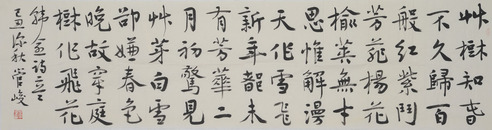 艸樹知春
不久歸百
般紅紫鬥
芳菲楊花
榆莢無才
思惟解漫
天作雪飛
新年都未
有芳華二
月初驚見
艸芽白雪
卻嫌春色
晚故穿庭
樹作飛花
韓愈詩二
秋管峻